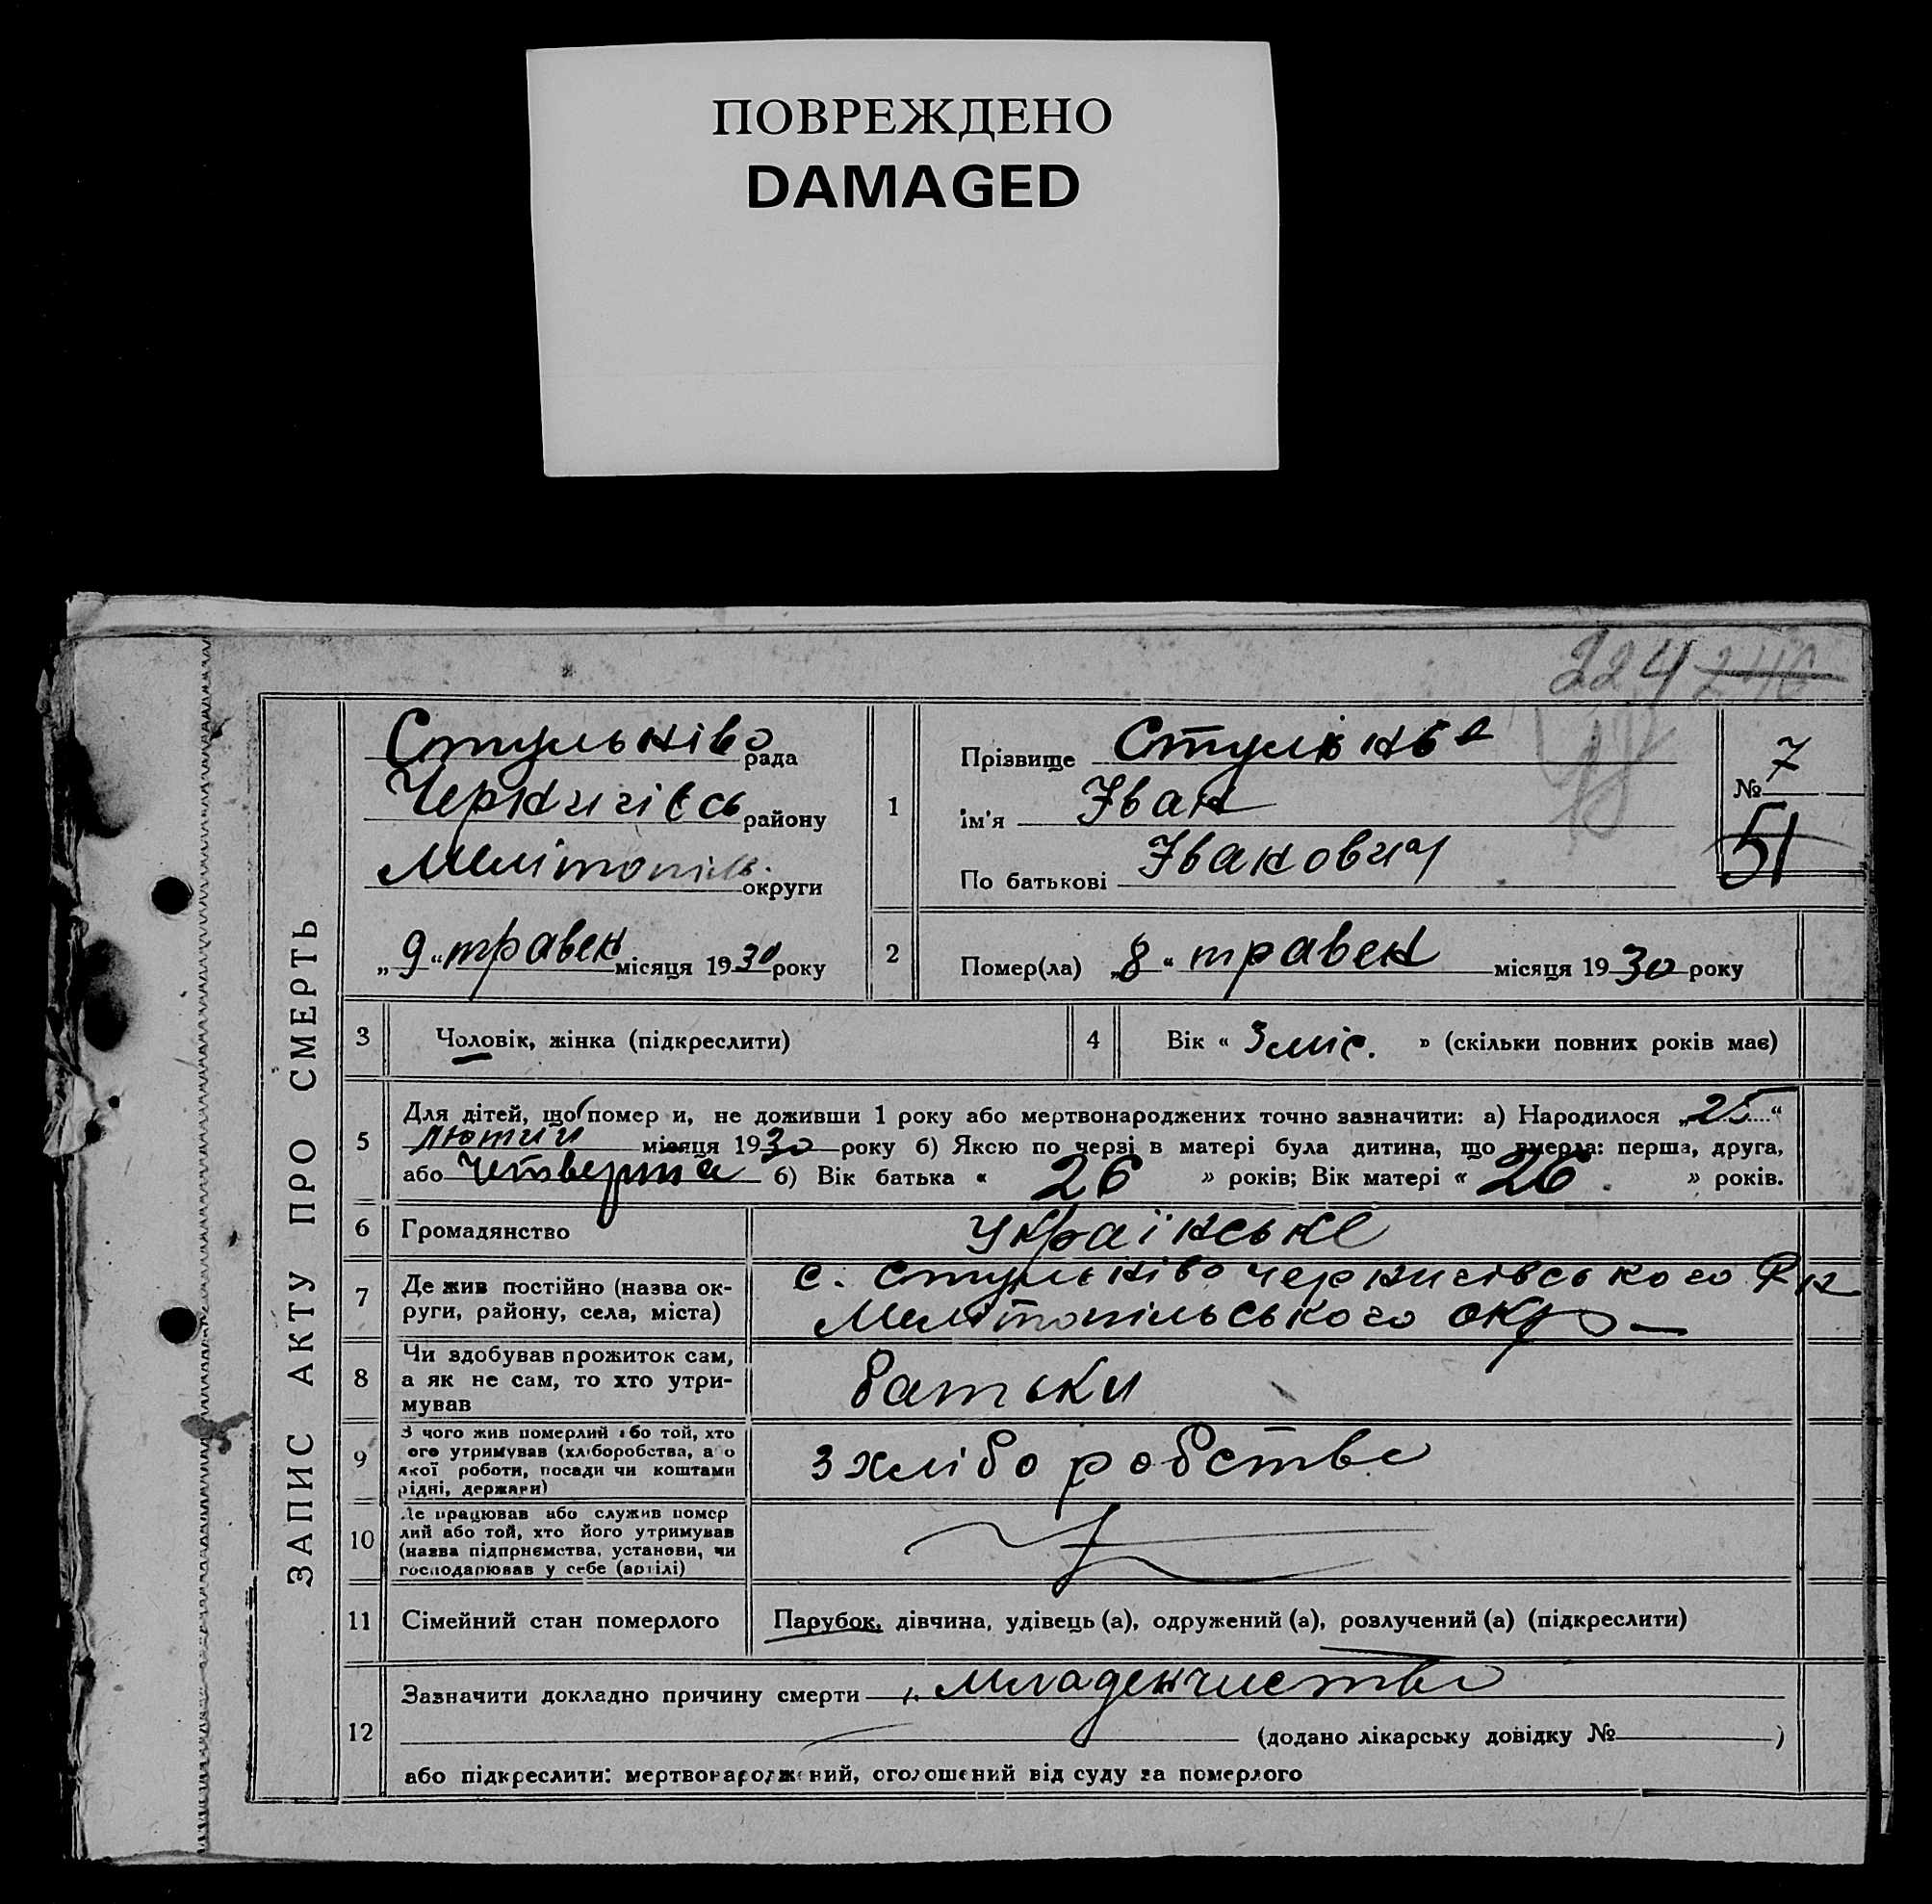 ПОВРЕЖДЕНО
DAMAGED
224 246
ЗАПИС АКТУ ПРО СМЕРТЬ
Стульніво рада
району
округи
„9“ травен місяця 1930 року
1
Прізвище
ім'я Іван
По батькові Іванович
№ 7
51
2
Помер(ла) „8“ травен місяця 1930 року
3 Чоловік, жінка (підкреслити)
4 Вік « 3 міс. » (скільки повних років має)
5 Для дітей, що помер и, не доживши 1 року або мертвонароджених точно зазначити: а) Народилося „25“
лютий місяця 1930 року б) Яксю по черзі в матері була дитина, що вмерла: перша, друга,
або четверта б) Вік батька « 26 » років; Вік матері « 26. » років.
6 Громадянство українське
7 Де жив постійно (назва ок-
руги, району, села, міста)
с. Стульніво Чернигівського
Мелітопільського окр
8 Чи здобував прожиток сам,
а як не сам, то хто утри-
мував
батьки
9 З чого жив померлий або той, хто
ого утримував (хліборобства, а о
якої роботи, посади чи коштами
рідні, держави)
з хліборобства
10 Де працював або служив помер
лий або той, хто його утримував
(назва підприємства, установи, чи
господарював у себе (артілі)
11 Сімейний стан померлого Парубок, дівчина, удівець (а), одружений (а), розлучений (а) (підкреслити)
12 Зазначити докладно причину смерти младенчиство
(додано лікарську довідку № )
або підкреслити: мертвонароджений, оголошений від суду за померлого